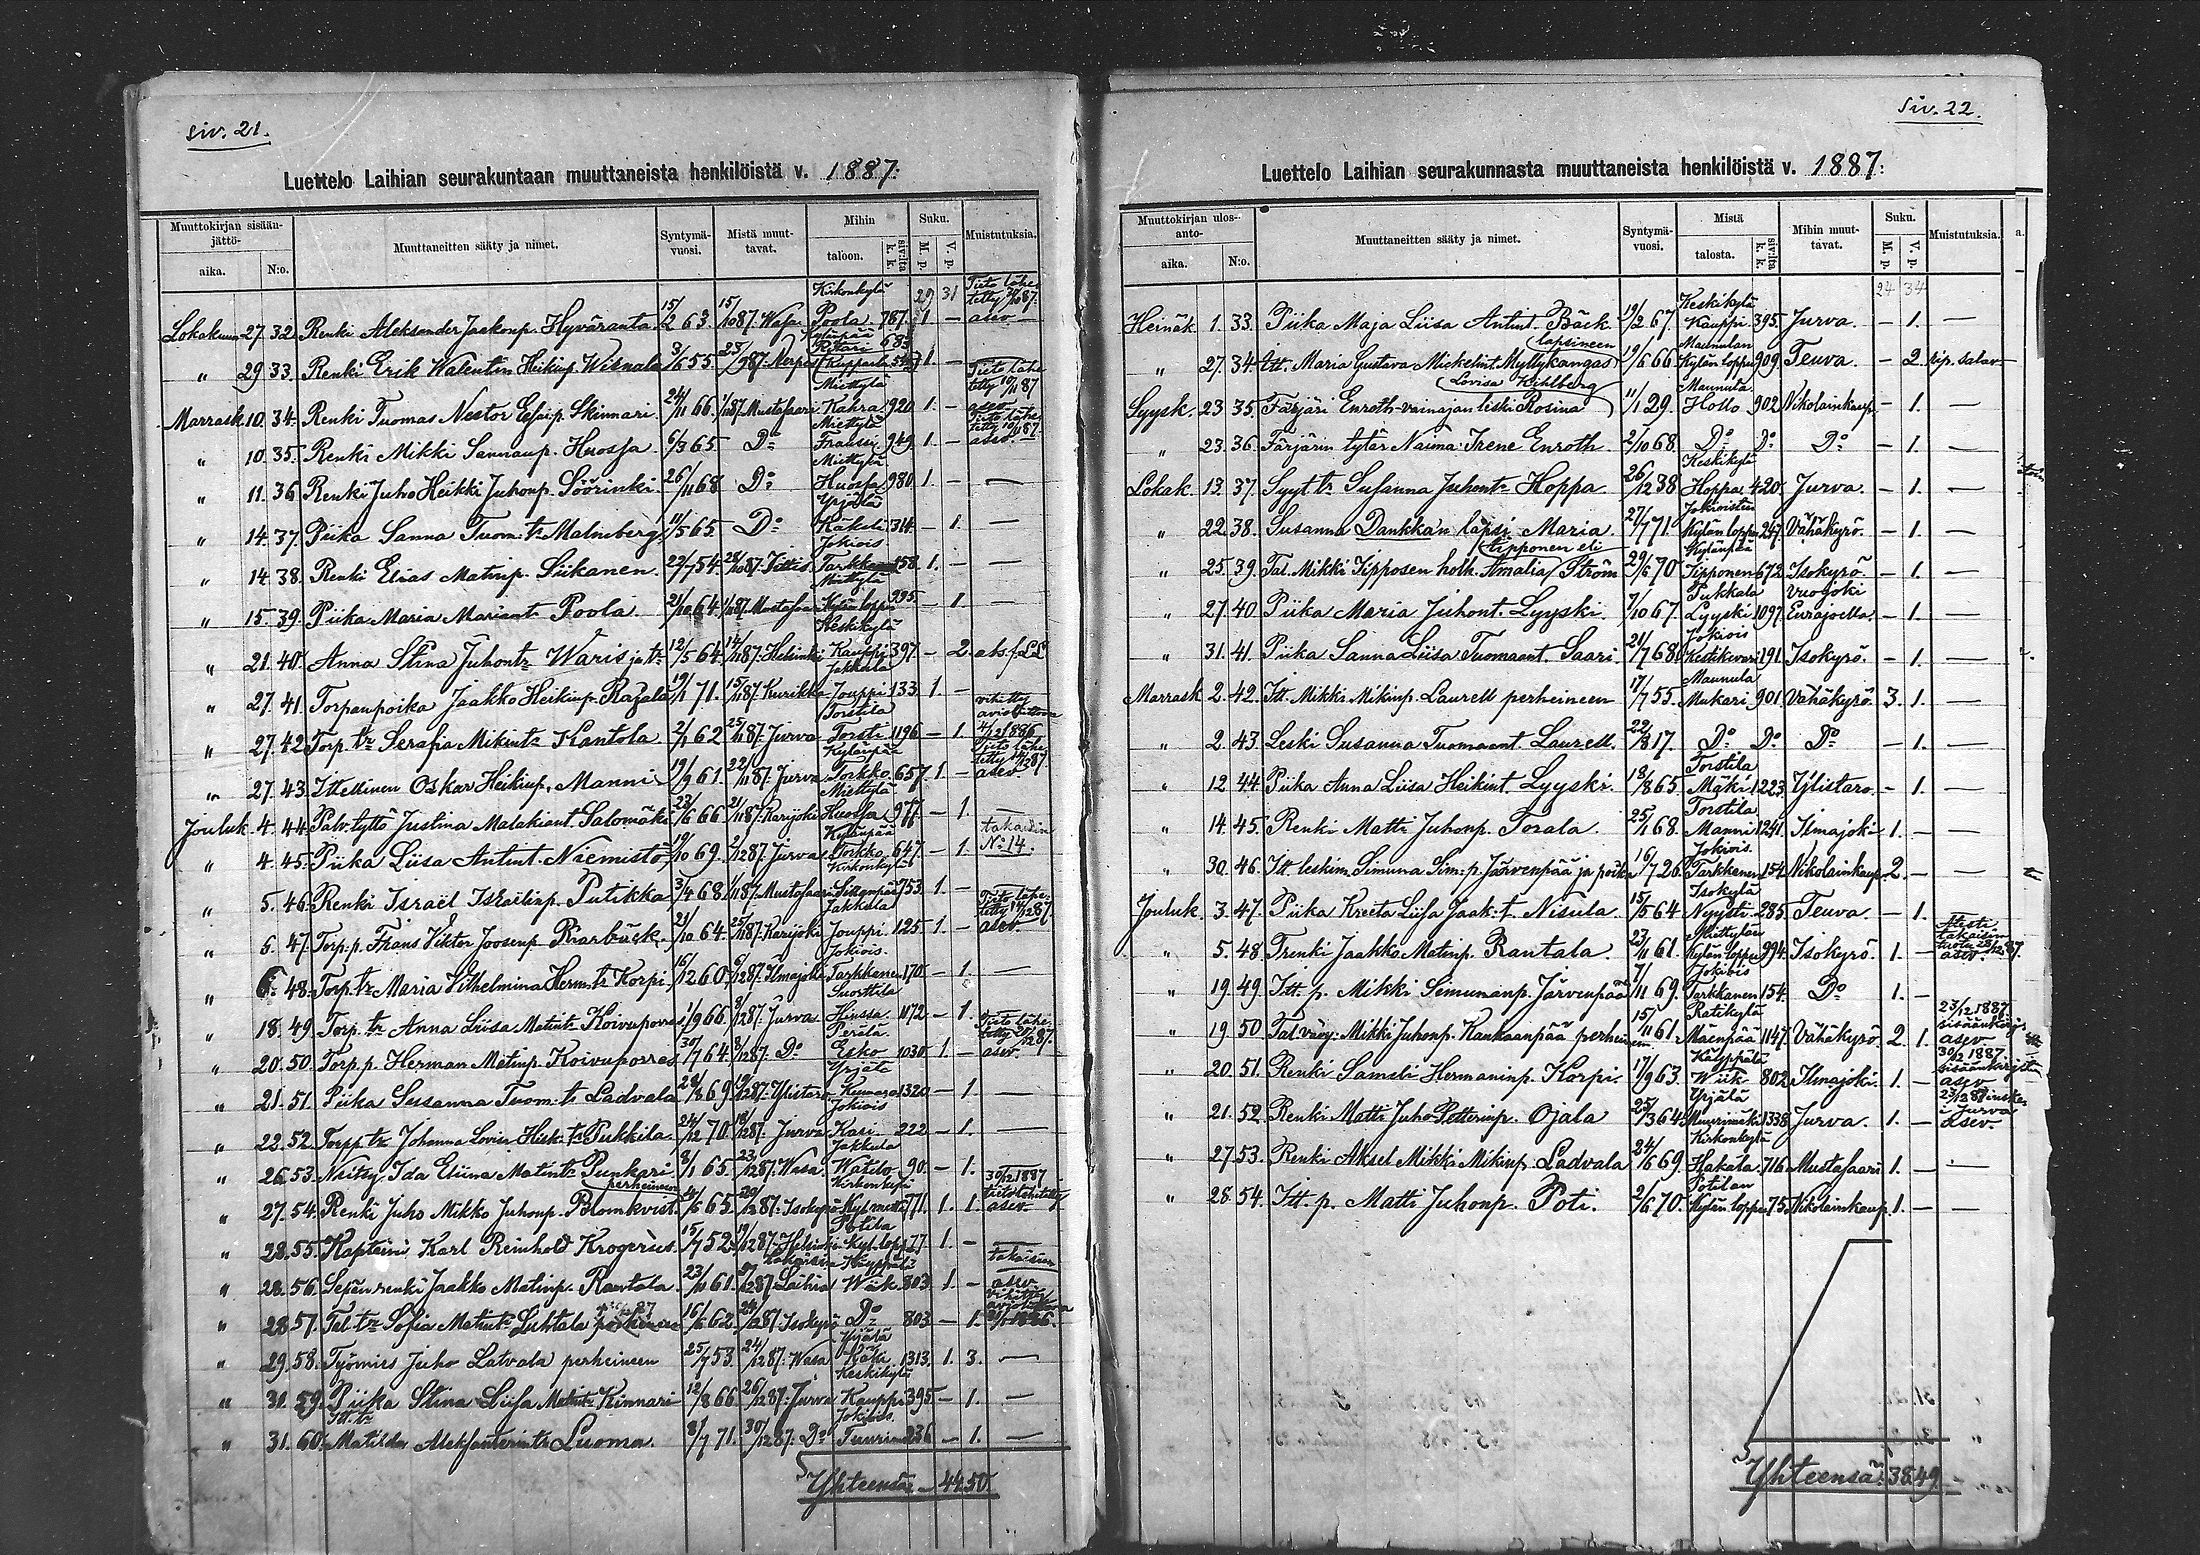 siv. 21.
Luettelo Laihian seurakuntaan muuttaneista henkilöistä v. 1887:
Muuttokirjan sisään-jättö- aika. N:o. Muuttaneitten sääty ja nimet. Syntymä-vuosi. Mistä muut-tavat. Mihin taloon. sivulta k. k. Suku. M. p. V. p. Muistutuksia.
29 31
Lokakuun 27. 32. Renki Aleksander Jaakonp. Hyväranta 15/2 63. 15/10 87. Wasa Kirkonkylä Poola 787 1 — Tieto lähetetty asev —
" 29 33. Renki Erik Walentin Heikinp. Wisnala 3/6 55. 23/9 87. Närpes 1. —
Marrask. 10. 34. Renki Tuomas Nestor Esaip. Skinnari 24/11 66. Mustasaari Miettylä Kahra 920 1. — Tieto lähetetty 10/11 87 asev
" 10. 35. Renki Mikki Sannanp. Huossa 6/3 65. Do Miettylä Franssi 949. 1. — Tieto lähetetty 10/11 87 asev. —
" 11. 36. Renki Juho Heikki Juhonp. Söörinki 26/11 68 Do Miettylä Huossa 980 1 — —
" 14. 37. Piika Sanna Tuom:tr Malmberg 11/5 65. Do Yrjälä Käkelä 314. — 1. —
" 14. 38. Renki Elias Matinp. Siikanen 22/7 54. Jokiois Tarkkanen 158. 1. — —
" 15. 39. Piika Maria Mariant. Poola 21/10 64. Mustasaari Miettylä Kylän loppu 995. — 1 —
" 21. 40. Anna Stina Juhontr Waris ja tr 12/5 64. 14/11 87. Helsinki Keskikylä Kauppi 397. — 2.
" 27. 41. Torpanpoika Jaakko Heikinp. Razala 19/1 71. 15/11 87. Kurikka Jakkula Jouppi 133. 1. —
" 27. 42. Torp. tr Serafia Mikintr Kantola 2/1 62 25/11 87. Jurva Torstila Torsti 1196 — 1 vihitty avioliittoon 4/12 1886
" 27. 43. Itsellinen Oskar Heikinp. Manni 19/9 61. 22/11 87. Jurva Kylänpää Torkko 657. 1. — Tieto lähetetty asev
Jouluk. 4. 44. Palv. tyttö Justina Malakiant. Salomäki 23/6 66 21/11 87. Karijoki Miettylä Huossa 977. — 1. —
" 4. 45. Piika Liisa Antint. Niemistö 19/10 69. Jurva Kylänpää Torkko 647. — 1. takaisin No 14.
" 5. 46. Renki Israël Israëlinp. Putikka 3/4 68. Mustasaari Kirkonkylä 753. 1. —
" 6. 47. Torp. p. Frans Viktor Joosenp. Rarbäck. 21/10 64. 25/11 87. Karijoki Jakkula Jouppi 125. 1. — Tieto lähetetty asev
" 6. 48. Torp. tr Maria Vilhelmina Herm. tr Korpi 15/12 60. Ilmajoki Jokiois. Tarkkanen 170 — 1. —
" 18. 49. Torp. tr Anna Liisa Matintr Koivuporras 1/9 66. Jurva Suorttila Hiussa 1172. — 1. —
" 20. 50. Torp. p. Herman Matinp. Koivuporras 30/7 64. Do Perälä Esko 1030. 1. — Tieto lähetetty asev.
" 21. 51. Piika Susanna Tuom:tr Ladvala 28/8 69. Ylistaro Yrjälä Kumara 1320 — 1. —
" 22. 52. Torpp. tr Johanna Lovisa Heikk. tr Pukkila. 24/12 70. Jurva Jokiois Kari 222 — 1. —
" 26. 53. Neitsy Ida Eliina Matintr Punkari 8/1 65. 23/12 87. Wasa Jakkula Watilo 90. — 1.
" 27. 54. Renki Juho Mikko Juhonp. Blomkvist. perheineen 65. Isokyrö Kirkonkylä 771. 1. 1. 30/12 1887 asev.
" 28. 55. Kapteini Karl Reinhold Krogerus 15/7 52. Helsinki Potila Kyl. loppu 77. 1. —
" 28. 56. Sepän renki Jaakko Matinp. Rantala 23/11 61. Takaisin Laihia Käyppälä Wiik 803. 1. — takaisin asev.
" 28. 57. Tal. tr Sofia Matintr Luhtala 16/6 62. Isokyrö Do 803 — 1.
" 29. 58. Työmies Juho Latvala perheineen 25/7 53. 24/12 87. Wasa Yrjälä Käki 1313. 1. 3. —
" 31. 59. Piika Stina Liisa Matintr Kinnari 12/8 66. 26/12 87. Jurva Keskikylä Kauppi 395. — 1. —
" 31. 60. Itt. tr Matilda Aleksanterintr Luoma. 8/7 71. 30/12 87. Do Jokiois 236 — 1. —
Yhteensä — 44. 50.
siv. 22.
Luettelo Laihian seurakunnasta muuttaneista henkilöistä v. 1887:
Muuttokirjan ulos-anto- aika. N:o. Muuttaneitten sääty ja nimet. Syntymä-vuosi. Mistä talosta. sivulta k. k. Mihin muut-tavat. Suku. M. p. V. p. Muistutuksia. a.
24 34
Heinäk. 1. 33. Piika Maja Liisa Antint. Bäck 19/2 67. Keskikylä Kauppi 395. Jurva. — 1. —
" 27. 34. Itt. Maria Gustava Mickelint. Myllykangas lapsineen 19/6 66 Maunulan Kylän loppu 909. Teuva. — 2.
Syysk. 23 35. Färjäri Enroth-vainajan leski Rosina Lovisa Kihlberg 11/1 29. Maunula Hollo 902 Nikolainkaup. — 1. —
" 23. 36. Färjärin tytär Naima Irene Enroth. 2/10 68. Do Do Do — 1. —
Lokak. 13. 37. Syyt. tr Susanna Juhontr Hoppa. 26/12 38 Keskikylä Hoppa 420. Jurva. — 1. —
" 22. 38. Susanna Dankka'n lapsi Maria. 27/7 71. Jokioisten Kylän loppu 247 Vähäkyrö. — 1. —
" 25. 39. Tal. Mikki Tipposen holh. Amalia Tipponen eli Ström 29/6 70 Kylänpää Tipponen 672 Isokyrö. — 1. —
" 27. 40. Piika Maria Juhont. Lyyski. 7/10 67. Pukkala Lyyski 1097. Vuojoki Eurajoella. — 1. —
" 31. 41. Piika Sanna Liisa Tuomaant. Saari. 21/7 68. Jokiois Kestikivari 191. Isokyrö. — 1. —
Marrask. 2. 42. Itt. Mikki Mikinp. Laurell perheineen 17/7 55. Maunula Mukari 901. Vähäkyrö. 3. 1. —
" 2. 43. Leski Susanna Tuomaant. Laurell. 22/8 17. Do Do Do — 1. —
" 12. 44. Piika Anna Liisa Heikint. Lyyski. 18/8 65. Torstila Mäki 1223. Ylistaro. — 1. —
" 14. 45. Renki Matti Juhonp. Torala. 25/1 68. Torstila Manni 1241. Ilmajoki. 1. — —
" 30. 46. Itt. leskim. Simuna Sim:p. Järvenpää ja poika 16/7 26. Jokiois. Tarkkanen 154. Nikolainkaup. 2. — —
Jouluk. 3. 47. Piika Kreeta Liisa Jaak:t. Nisula. 15/5 64 Isokylä Nyysti 285. Teuva. — 1.
" 5. 48. Trenki Jaakko Matinp. Rantala. 23/11 61. Miettylän Kylän loppu 994. Isokyrö. 1. — takaisin asev
" 19. 49. Itt. p. Mikki Simunanp. Järvenpää 7/11 69. Jokiois Tarkkanen 154. Do 1. —
" 19. 50. Tal. väv. Mikki Juhonp. Kankaanpää perheineen 15/11 61. Ratikylä Mäenpää 1147. Vähäkyrö. 2. 1. 23/12 1887. asev
" 20. 51. Renki Sameli Hermaninp. Korpi. 17/9 63. Käyppälä Wiik 802. Ilmajoki. 1. — 30/12 1887. asev
" 21. 52. Renki Matti Juho Petterinp. Ojala 25/3 64. Yrjälä 1338 Jurva. 1. — i Jurva asev
" 27. 53. Renki Aksel Mikki Mikinp. Ladvala 24/6 69. Kirkonkylä Hakala. 716. Mustasaari 1. — —
" 28. 54. Itt. p. Matti Juhonp. Poti. 2/6 70. Potilan Kylän loppu 75. Nikolainkaup. 1. — —
Yhteensä: 38. 49.